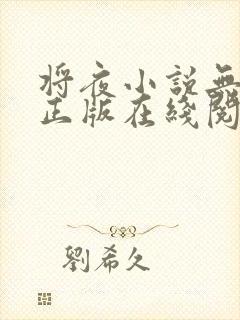 将夜小説無
正版在綫閱
劉希久